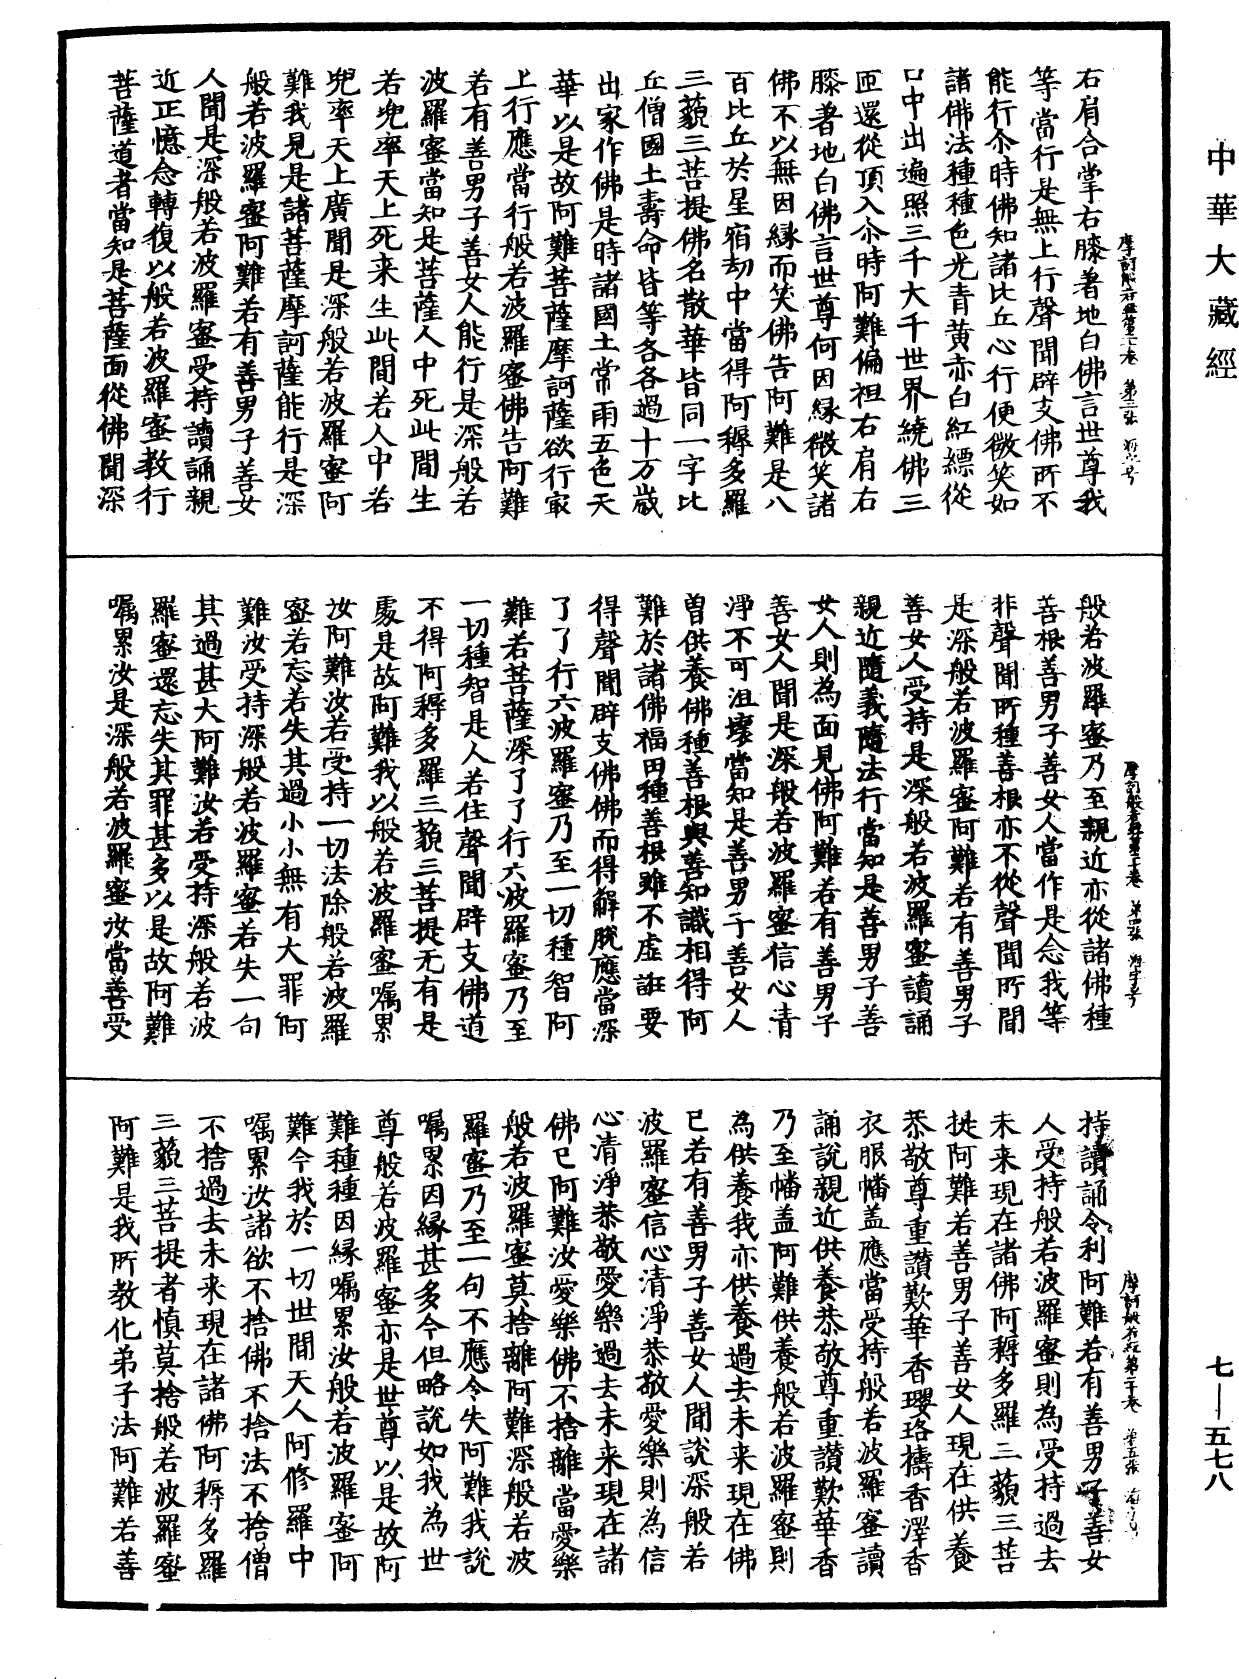 中華大藏經
右肩合掌右膝著地白佛言世尊我
等當行是無上行聲聞辟支佛所不
能行尒時佛知諸比丘心行便微笑如
諸佛法種種色光青黄赤白紅縹從
口中出遍照三千大千世界繞佛三
匝還從頂入尒時阿難偏袒右肩右
膝著地白佛言世尊何因緣微笑諸
佛不以無因緣而笑佛告阿難是八
百比丘於星宿劫中當得阿耨多羅
三藐三菩提佛名散華皆同一字比
丘僧國土壽命皆等各各過十万歲
出家作佛是時諸國土常雨五色天
華以是故阿難菩薩摩訶薩欲行寂
上行應當行般若波羅蜜佛告阿難
若有善男子善女人能行是深般若
波羅蜜當知是菩薩人中死此間生
若兜率天上死来生此間若人中若
兜率天上廣聞是深般若波羅蜜阿
難我見是諸菩薩摩訶薩能行是深
般若波羅蜜阿難若有善男子善女
人聞是深般若波羅蜜受持讀誦親
近正憶念轉復以般若波羅蜜教行
菩薩道者當知是菩薩面從佛聞深
般若波羅蜜乃至親近亦從諸佛種
善根善男子善女人當作是念我等
非聲聞所種善根亦不從聲聞所聞
是深般若波羅蜜阿難若有善男子
善女人受持是深般若波羅蜜讀誦
親近隨義隨法行當知是善男子善
女人則為面見佛阿難若有善男子
善女人聞是深般若波羅蜜信心清
淨不可沮壞當知是善男子善女人
曾供養佛種善根與善知識相得阿
難於諸佛福田種善根雖不虛誑要
得聲聞辟支佛佛而得解脫應當深
了了行六波羅蜜乃至一切種智阿
難若菩薩深了了行六波羅蜜乃至
一切種智是人若住聲聞辟支佛道
不得阿耨多羅三藐三菩提无有是
處是故阿難我以般若波羅蜜囑累
汝阿難汝若受持一切法除般若波羅
蜜若忘若失其過小小無有大罪阿
難汝受持深般若波羅蜜若失一句
其過甚大阿難汝若受持深般若波
羅蜜還忘失其罪甚多以是故阿難
囑累汝是深般若波羅蜜汝當善受
持讀誦令利阿難若有善男子善女
人受持般若波羅蜜則為受持過去
未来現在諸佛阿耨多羅三藐三菩
提阿難若善男子善女人現在供養
恭敬尊重讚歎華香瓔珞擣香澤香
衣服幡盖應當受持般若波羅蜜讀
誦說親近供養恭敬尊重讚歎華香
乃至幡盖阿難供養般若波羅蜜則
為供養我亦供養過去未来現在佛
已若有善男子善女人聞說深般若
波羅蜜信心清淨恭敬愛樂則為信
心清淨恭敬愛樂過去未来現在諸
佛已阿難汝愛樂佛不捨離當愛樂
般若波羅蜜莫捨離阿難深般若波
羅蜜乃至一句不應令失阿難我說
囑累因緣甚多今但略說如我為世
尊般若波羅蜜亦是世尊以是故阿
難種種因緣囑累汝般若波羅蜜阿
難今我於一切世間天人阿修羅中
囑累汝諸欲不捨佛不捨法不捨僧
不捨過去未来現在諸佛阿耨多羅
三藐三菩提者慎莫捨般若波羅蜜
阿難是我所教化弟子法阿難若善
七—五七八